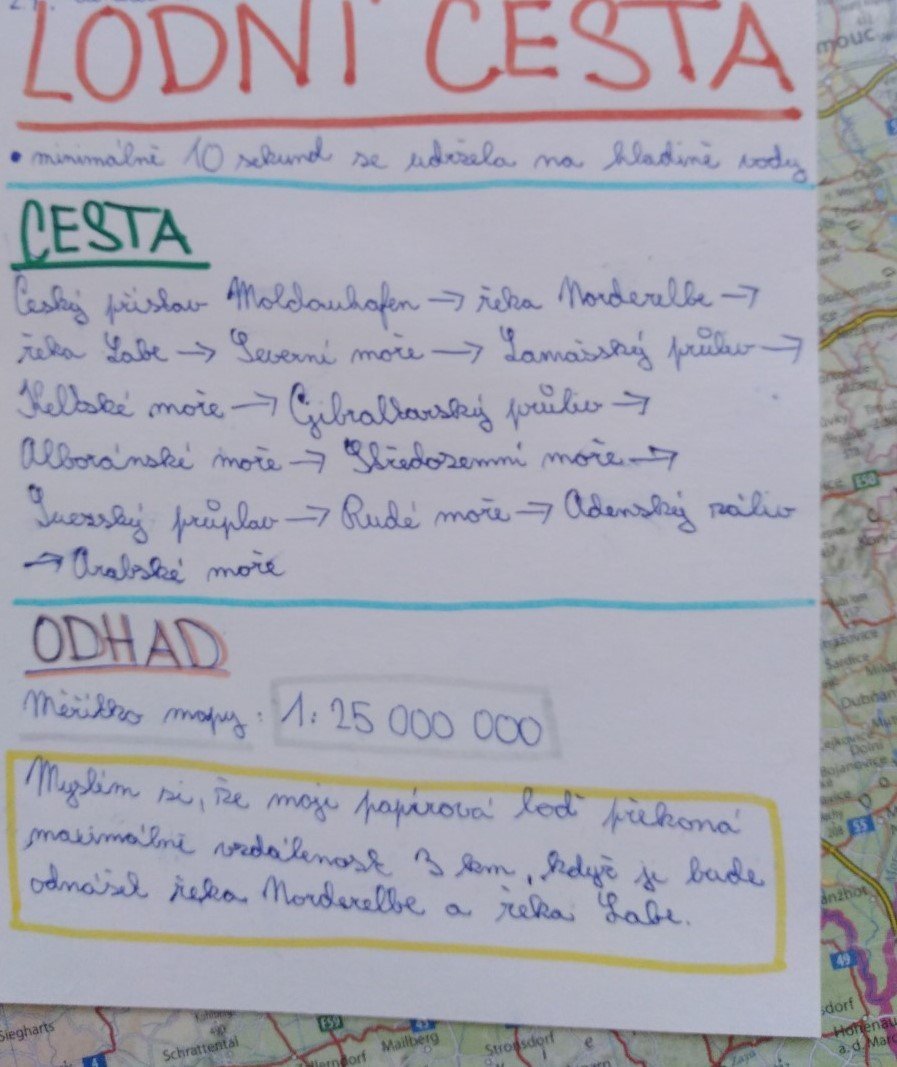 LODNÍ CESTA
• minimálně 10 sekund se udržela na hladině vody
CESTA
Český přístav Moldauhafen → řeka Norderelbe →
řeka Labe → Severní moře → Lamašský průliv →
Keltské moře → Gibraltarský průliv →
Alboránské moře → Středozemní moře →
Suezský průplav → Rudé moře → Adenský záliv
→ Arabské moře
ODHAD
Měřítko mapy: 1:25 000 000
Myslím si, že moje papírová loď překoná
maximálně vzdálenost 3 km, když je bude
odnášet řeka Norderelbe a řeka Labe.
mouc
E50
Šardice
Dubňan
Dolní
Bojanovice
55
anžhot
49
sdorf
Hohenau
a. d. March
Sieghards
4
Schrattental
E59
Mailberg
45
Stronsdorf